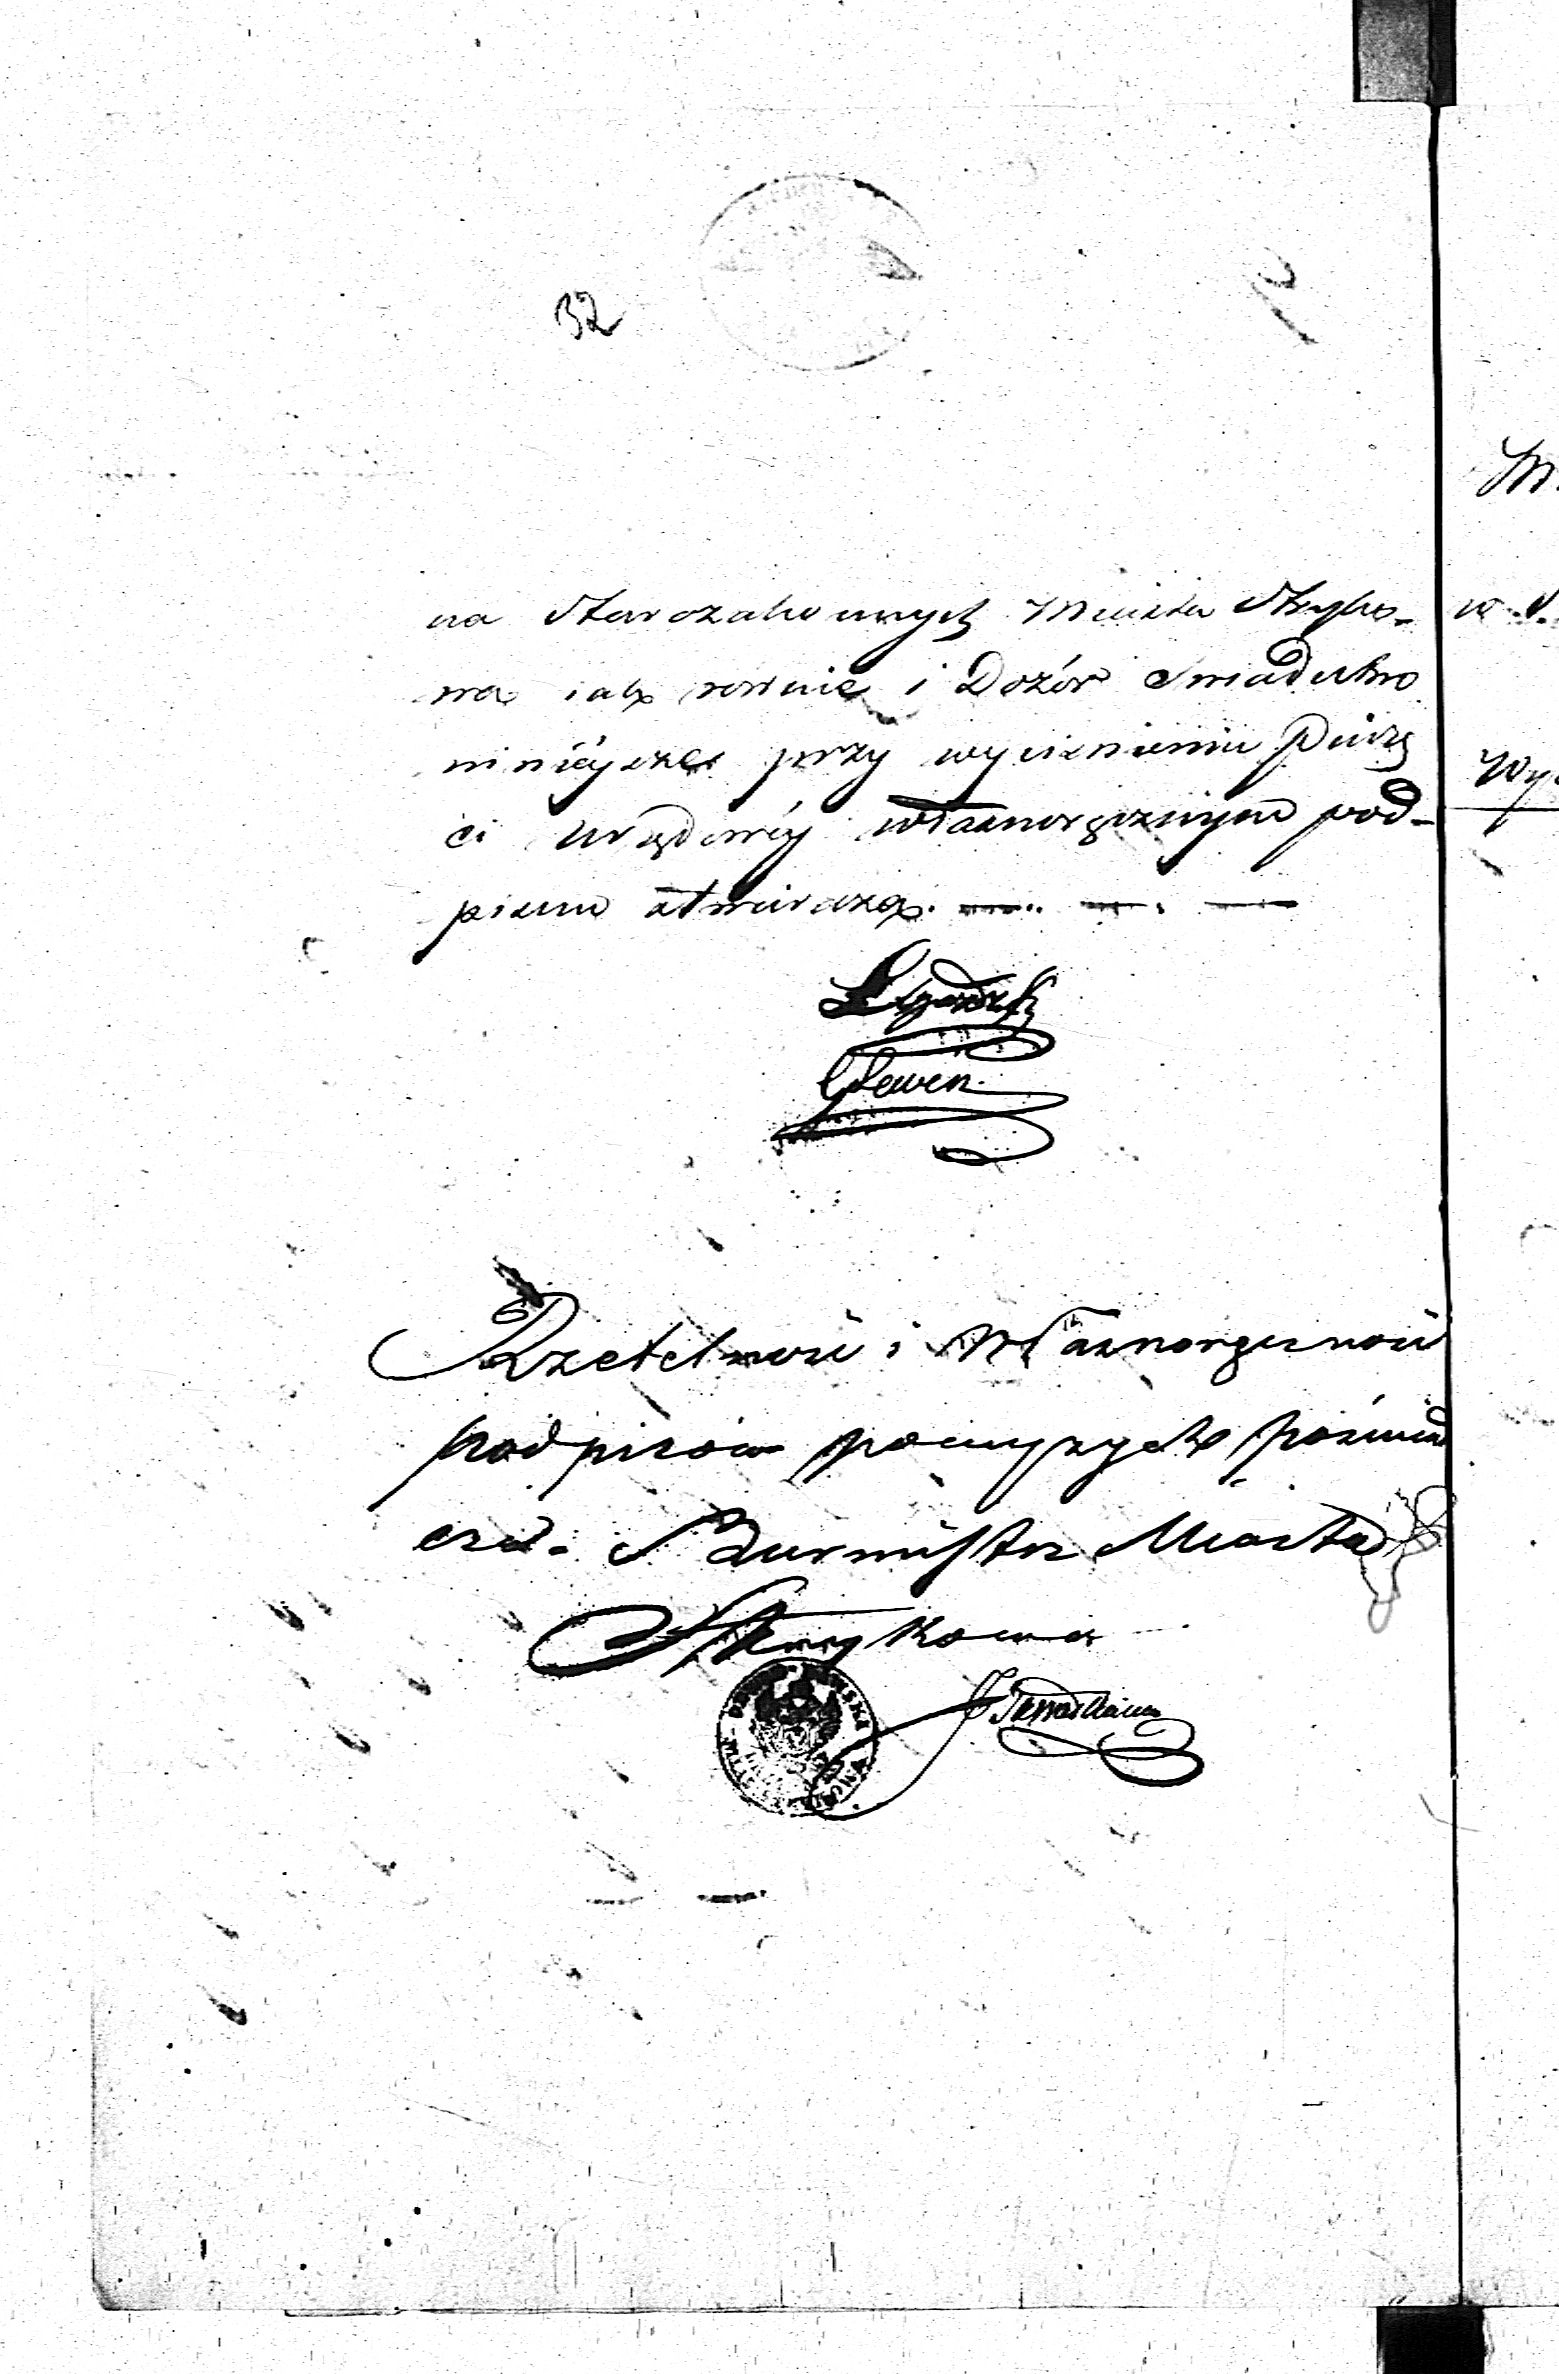 32
na Starozakonnych Miasta Stryko-
wa iak rownie i Dozór Swiadectwo
ninieysze przy wyciśnieniu Pieczę
ci Urzędowéy własnoręcznym pod-
pisem stwierdza.
Lewen
Rzetelność i Własnoręczność
podpisów powyższych poświad
cza. Burmistrz Miasta
Strykowa